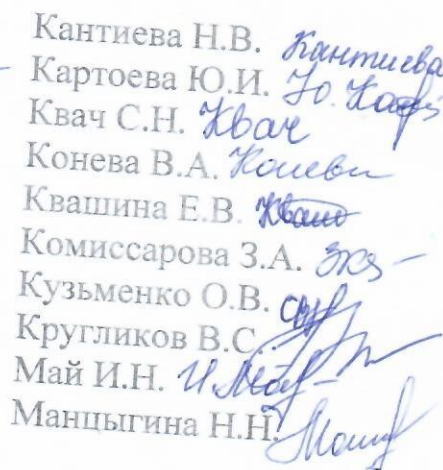 Кантиева Н.В. Кантиева
Картоева Ю.И. Ю. Кар
Квач С.Н. Квач
Конева В.А. Конева
Квашина Е.В. Кваш
Комиссарова З.А.
Кузьменко О.В.
Кругликов В.С.
Май И.Н. И. Май
Манцыгина Н.Н.